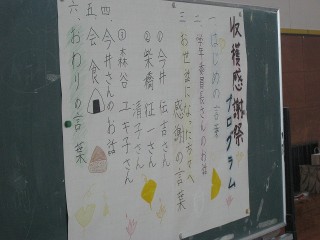 収穫感謝祭
プログラム
一、はじめの言葉
二、学年委員長さんのお話
三、お世話になった方々へ
感謝の言葉
①今井伝吉さん
②柴橋征一さん
清子さん
①森谷ユキ子さん
四、今井さんのお話
五、会食
六、おわりの言葉